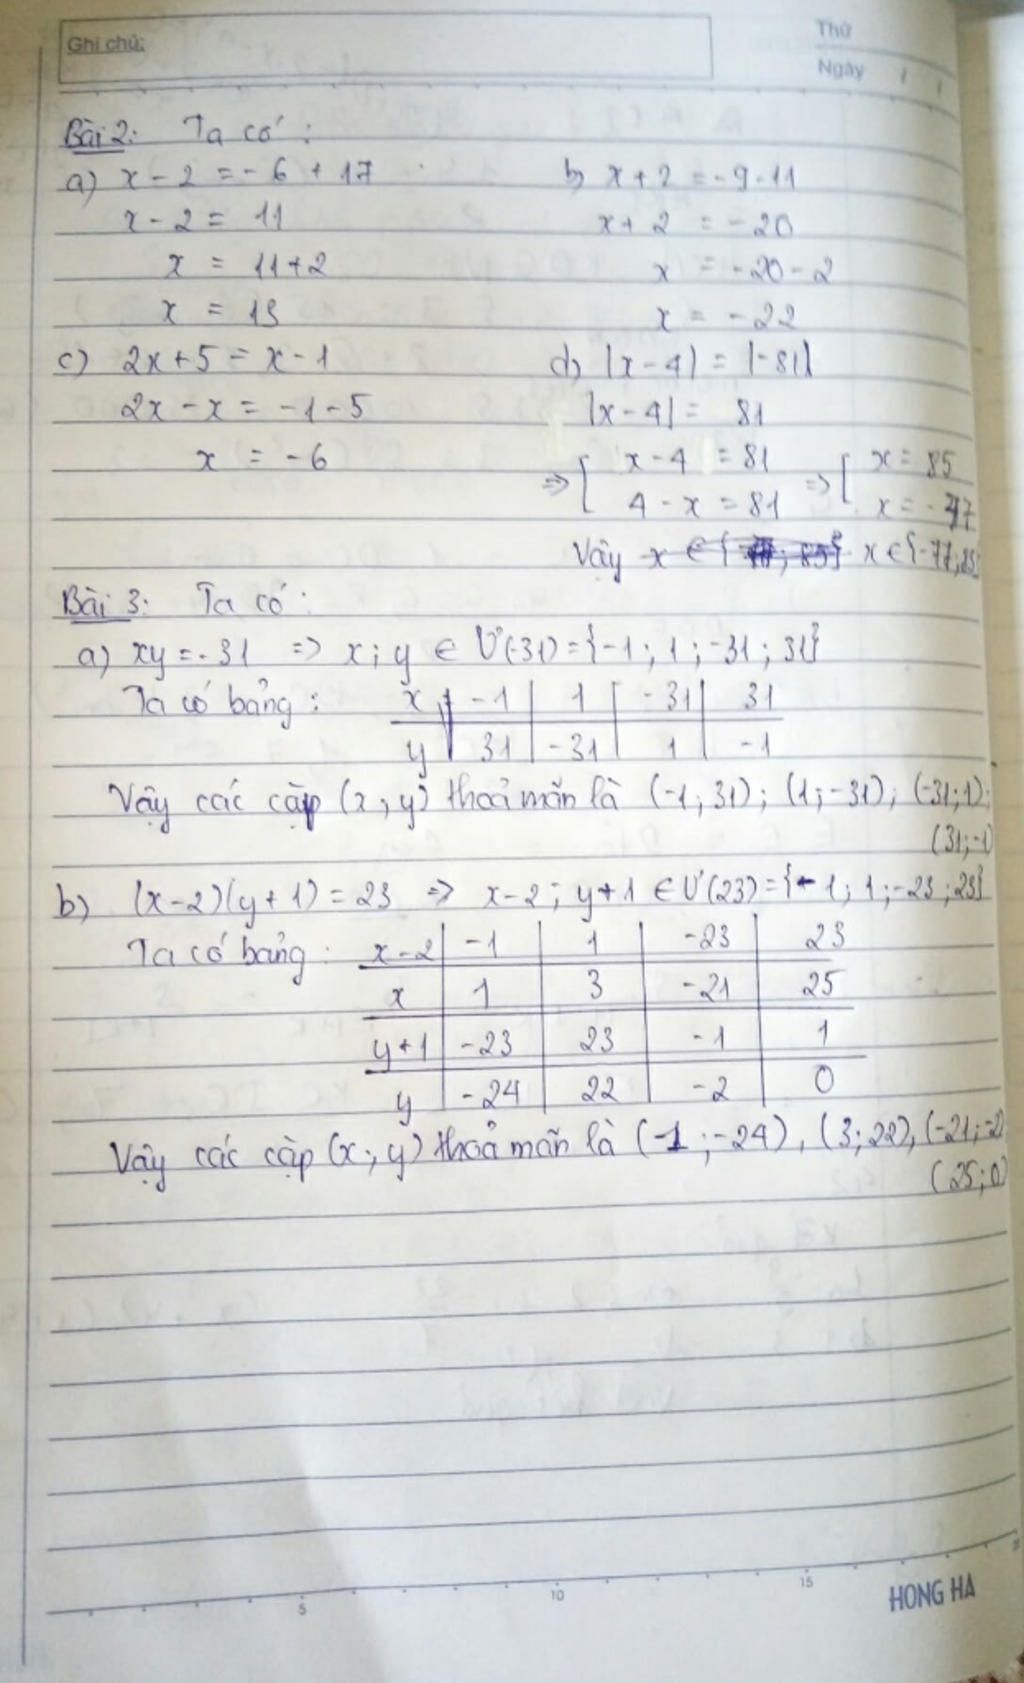 Ghi chú:
Thứ
Ngày / /
Bài 2: Ta có:
a) x - 2 = - 6 + 17
x - 2 = 11
x = 11 + 2
x = 13
b) x + 2 = - 9 - 11
x + 2 = - 20
x = - 20 - 2
x = - 22
c) 2x + 5 = x - 1
2x - x = - 1 - 5
x = - 6
d) |x - 4| = |-81|
|x - 4| = 81
=> [ x - 4 = 81 => [ x = 85
4 - x = 81 x = - 77
Vậy x ∈ {-77; 85}
Bài 3: Ta có:
a) xy = - 31 => x; y ∈ Ư(-31) = {-1; 1; -31; 31}
Ta có bảng:
x -1 1 -31 31
y 31 -31 1 -1
Vậy các cặp (x; y) thoả mãn là (-1; 31); (1; -31); (-31; 1);
(31; -1)
b) (x - 2)(y + 1) = 23 => x - 2; y + 1 ∈ Ư(23) = {-1; 1; -23; 23}
Ta có bảng:
x - 2 -1 1 -23 23
x 1 3 -21 25
y + 1 -23 23 -1 1
y -24 22 -2 0
Vậy các cặp (x; y) thoả mãn là (-1; -24), (3; 22), (-21; -2)
(25; 0)
5 10 15
HONG HA